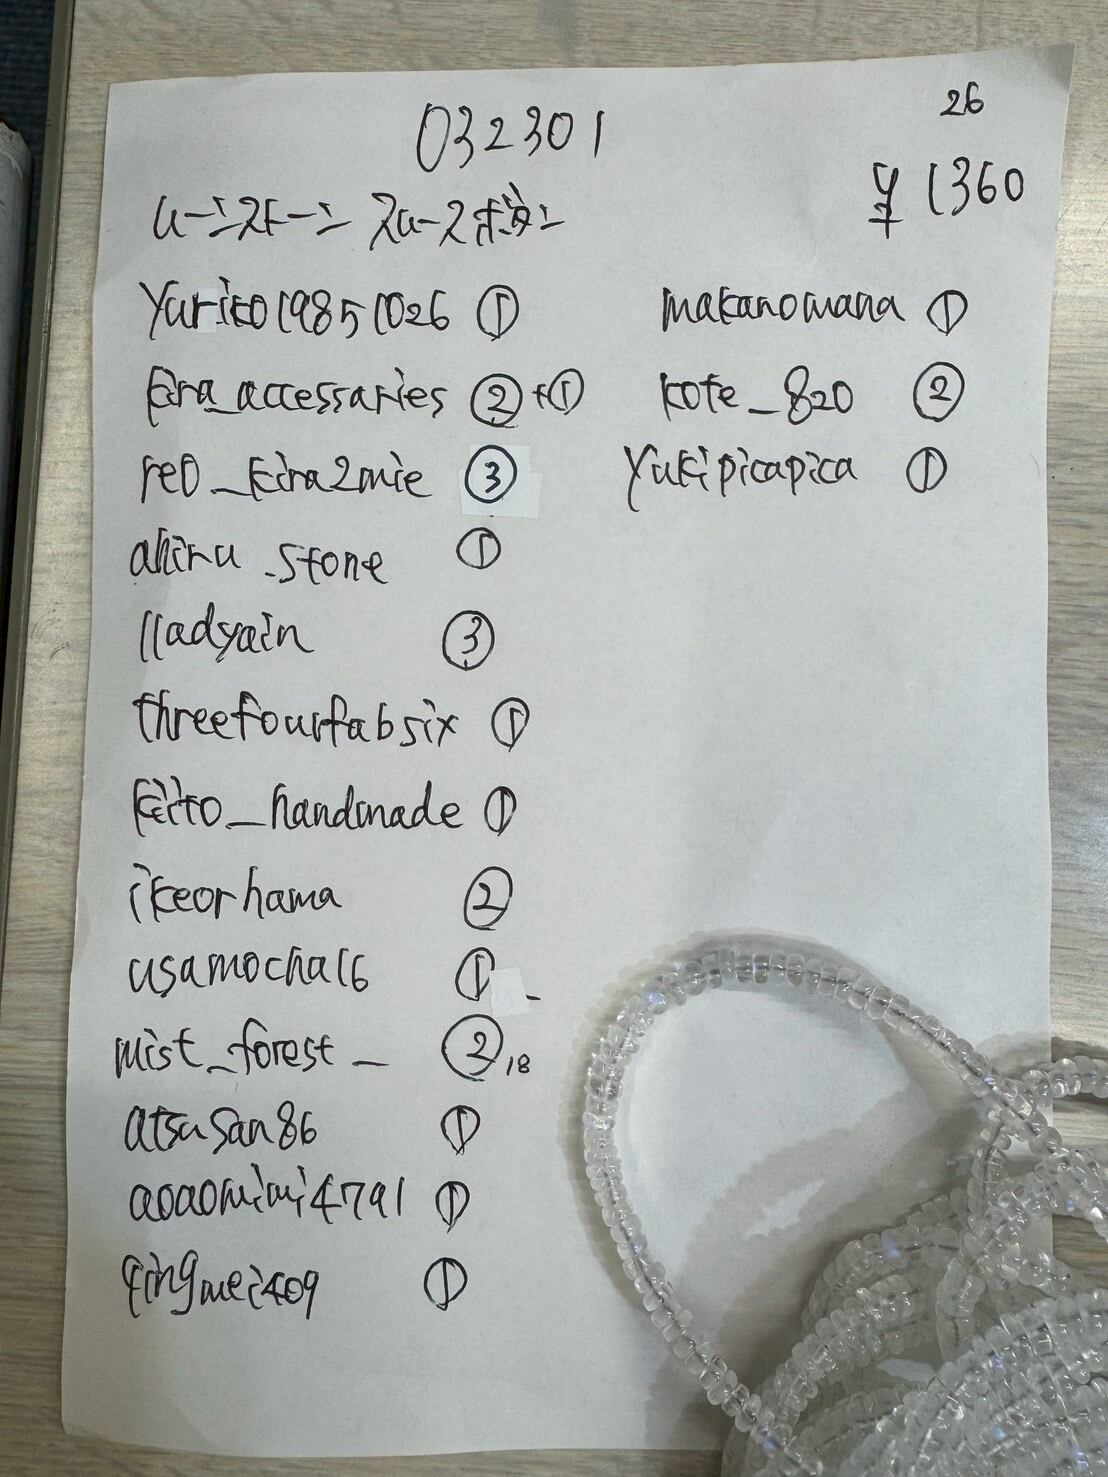 032301
26
¥1360
ムーンストーン スムースボタン
Yuriko19851026 ①
kira_accessaries ②+①
reo_kira2mie ③
ahiru_stone ①
lladyain ③
threefourfabsix ①
keito_handmade ①
ikeorhama ②
usamocha16 ①
mist_forest_ ②,18
atsusan86 ①
aoaomimi4791 ①
qingmei409 ①
makanomana ①
kote_820 ②
Yukipicapica ①